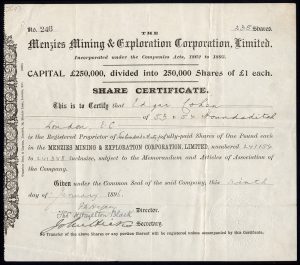 No. 246
235 Shares.
THE
Menzies Mining & Exploration Corporation, Limited.
Incorporated under the Companies Acts, 1862 to 1893.
CAPITAL £250,000, divided into 250,000 Shares of £1 each.
SHARE CERTIFICATE.
This is to Certify that Edgar Cohen
of 53 & 54 Houndsditch
London E.C.
is the Registered Proprietor of fully-paid Shares of One Pound each
in the MENZIES MINING & EXPLORATION CORPORATION, LIMITED, numbered 241154
to 241388 inclusive, subject to the Memorandum and Articles of Association of
the Company.
Given under the Common Seal of the said Company, this
day of 189
Director.
Secretary.
No Transfer of the above Shares or any portion thereof will be registered unless accompanied by this Certificate.